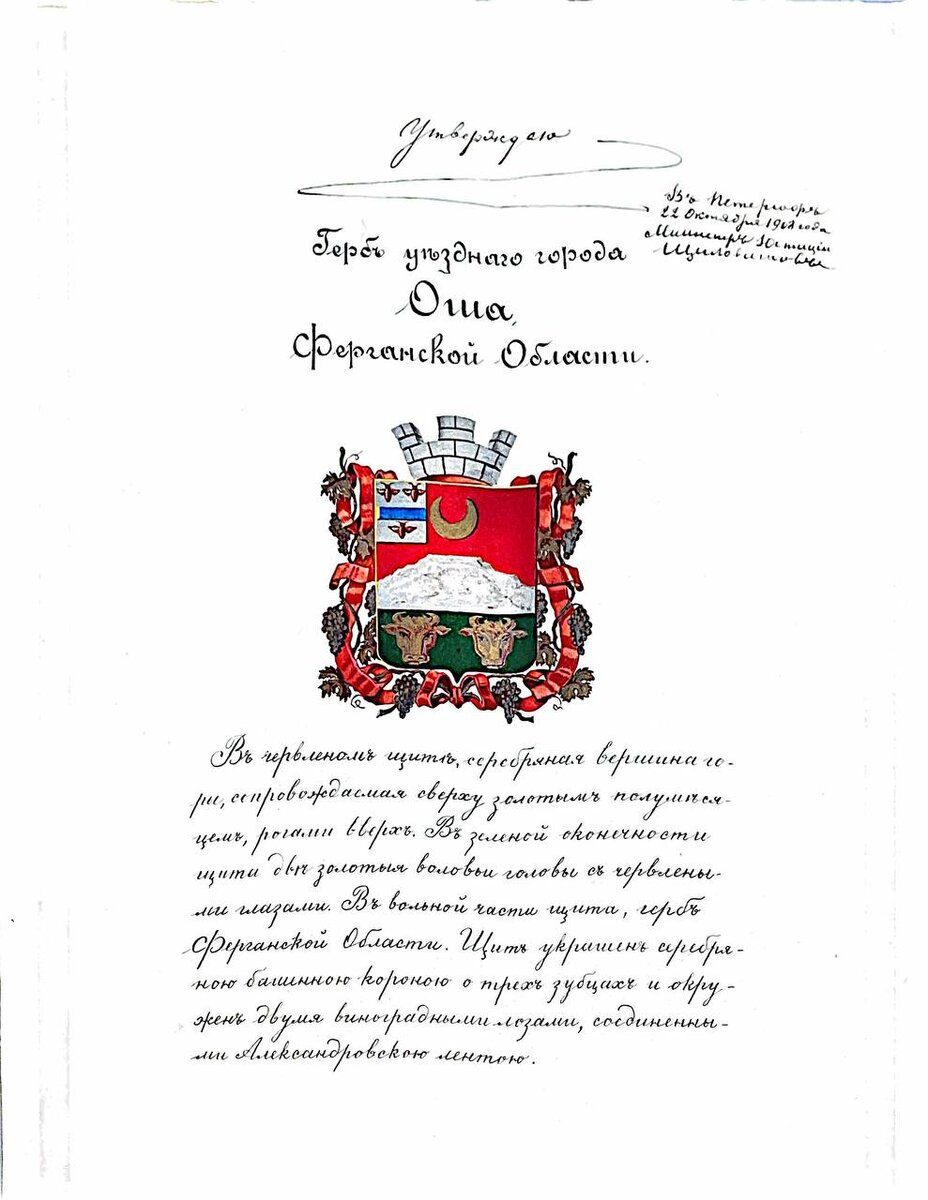 Утверждаю
Въ Петергофѣ
22 Октября 1908 года
Министръ Юстиціи
Щегловитовъ
Гербъ уѣзднаго города
Оша,
Ферганской Области.
Въ червленомъ щитѣ, серебряная вершина го-
ры, сопровождаемая сверху золотымъ полумѣся-
цемъ, рогами вверхъ. Въ зеленой оконечности
щита двѣ золотыя воловьи головы съ червлены-
ми глазами. Въ вольной части щита, гербъ
Ферганской Области. Щитъ украшенъ серебря-
ною башенною короною о трехъ зубцахъ и окру-
женъ двумя виноградными лозами, соединенны-
ми Александровскою лентою.